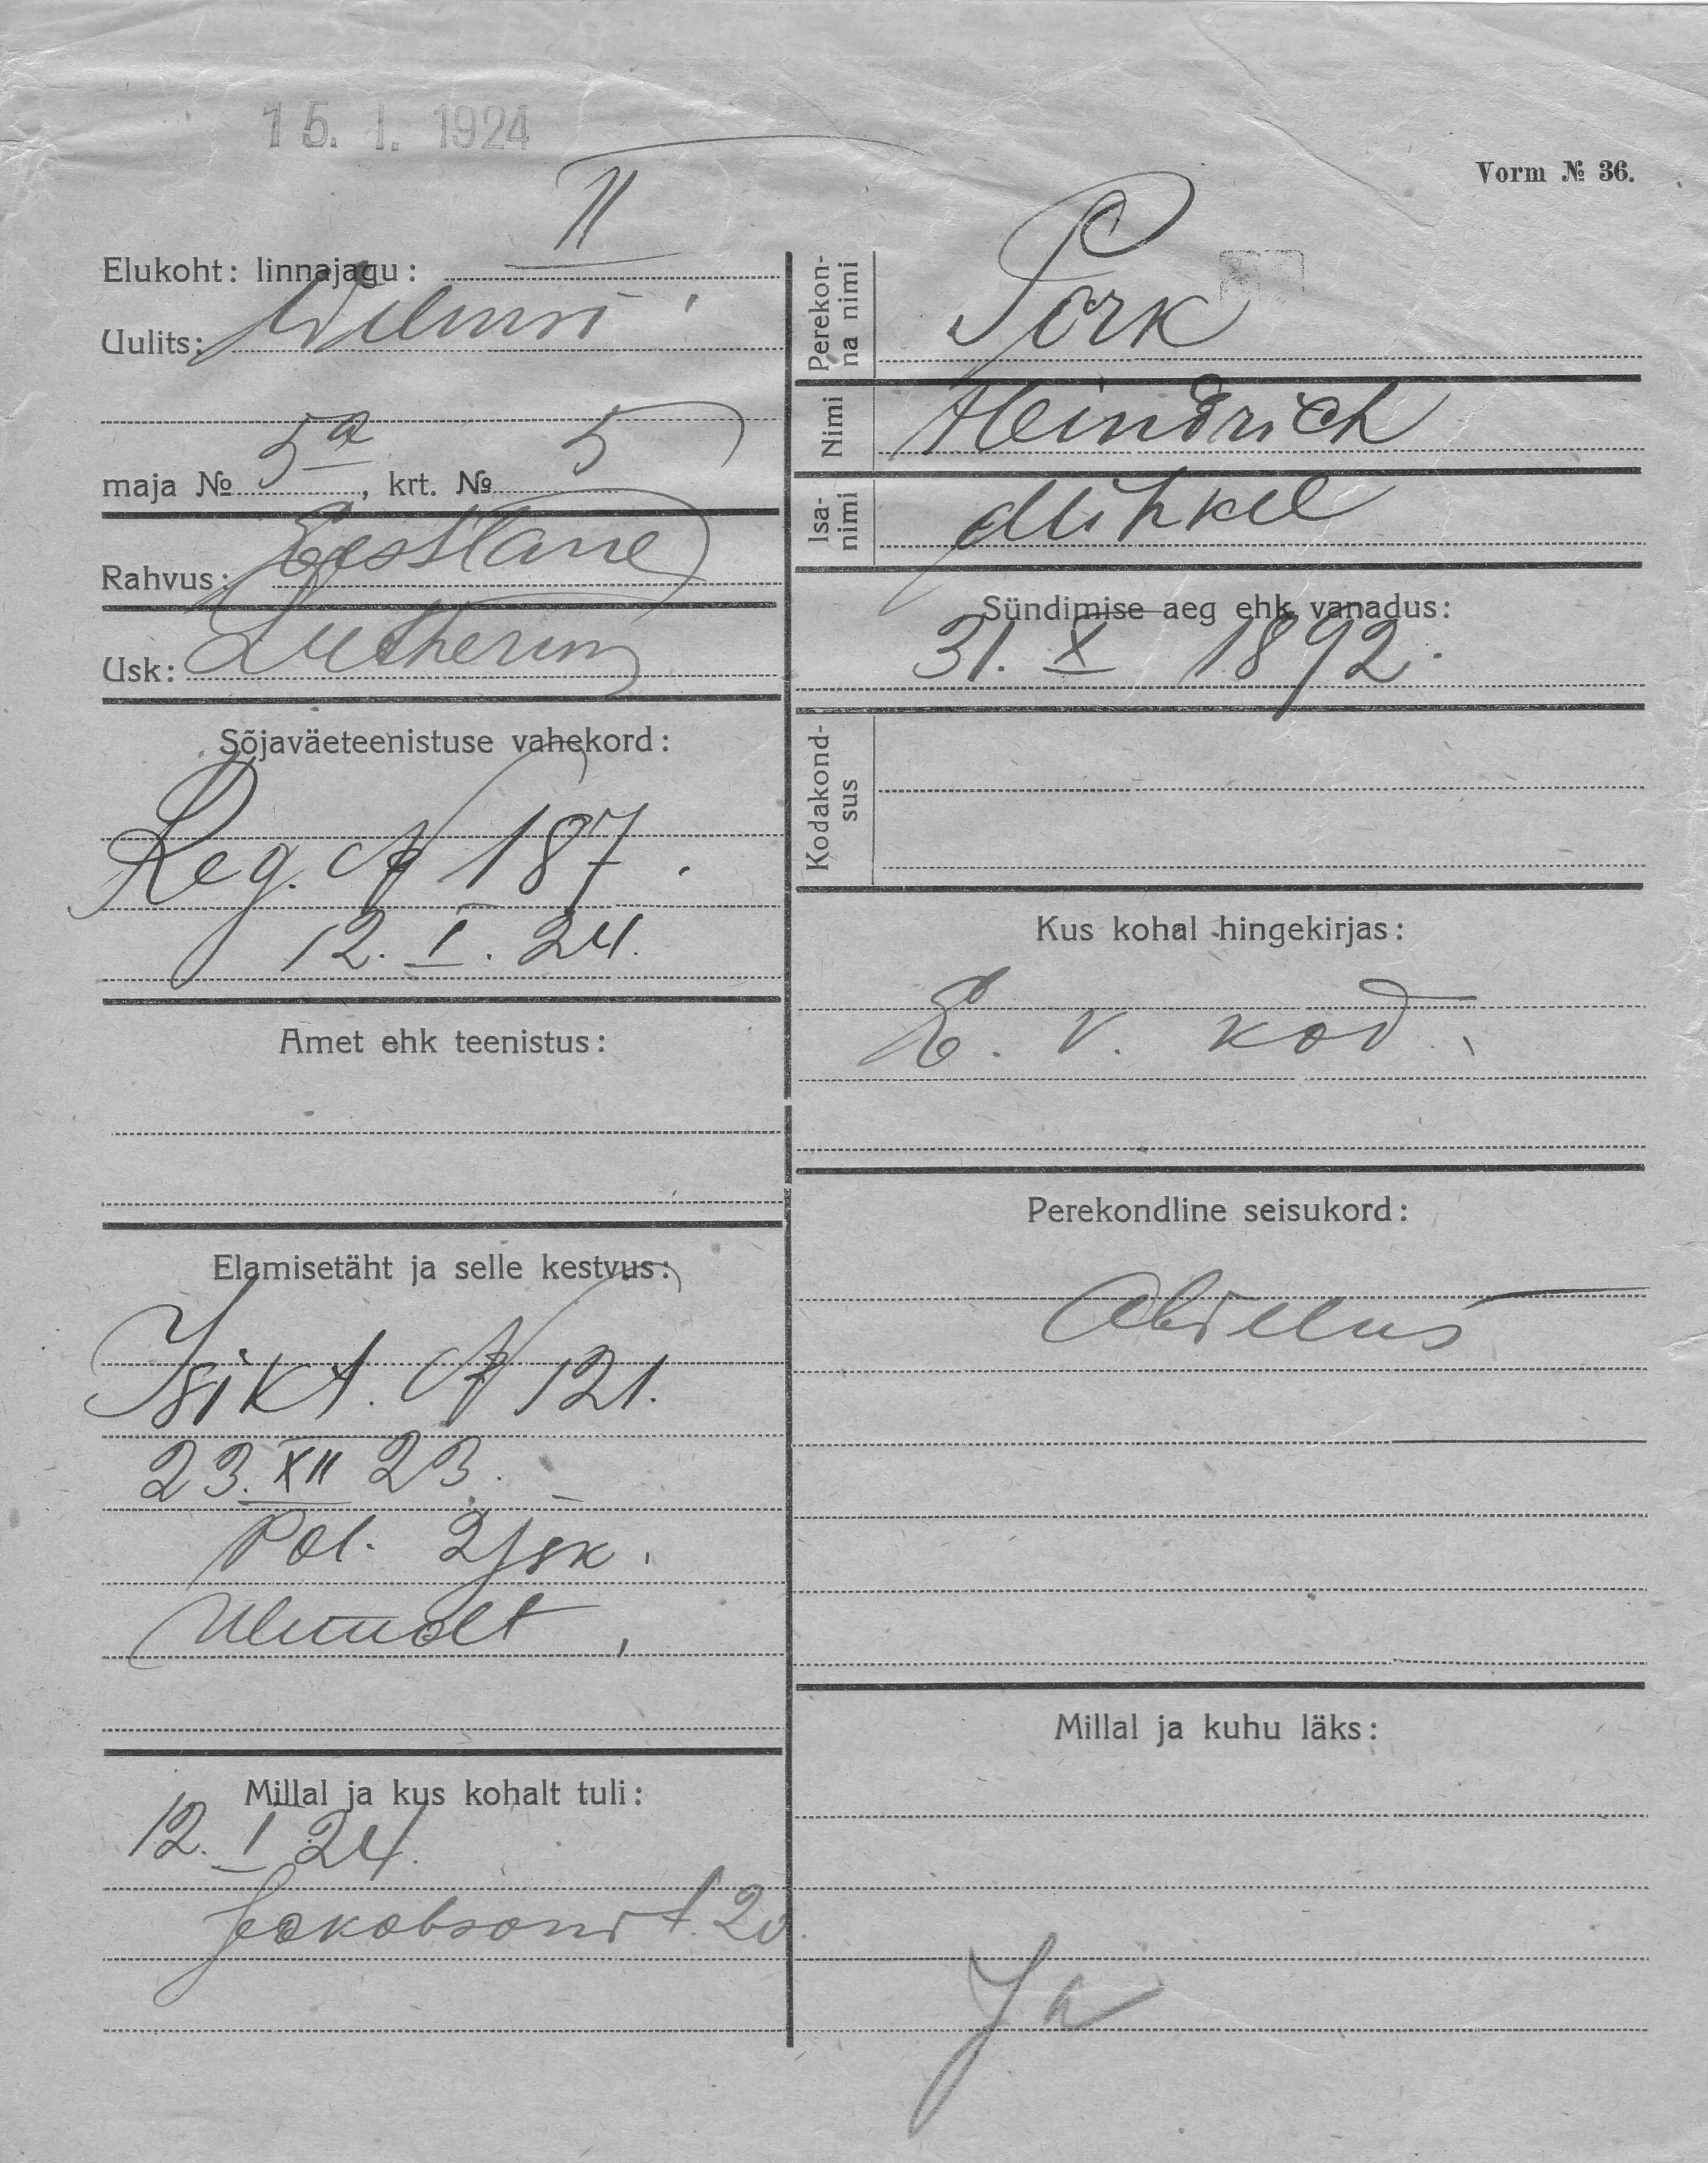 15. I. 1924
Vorm № 36.
Elukoht: linnajagu: II
Uulits: Wilmsi
maja № 5a, krt. № 5
Rahvus: Eestlane
Usk: Lutherius
Sõjaväeteenistuse vahekord:
Reg. № 187.
12. I. 24.
Amet ehk teenistus:
Elamisetäht ja selle kestvus:
Isikt. № 121.
23. XII 23.
Pol. 2 jsk.
Millal ja kus kohalt tuli:
12. I 24.
Jakobsoni t. 20.
Perekon-
na nimi
Pork
Nimi Heindrich
Isa-
nimi
Mihkel
Sündimise aeg ehk vanadus:
31. X 1892.
Kodakond-
sus
Kus kohal hingekirjas:
E. v. kod.
Perekondline seisukord:
Abielus
Millal ja kuhu läks:
Ja